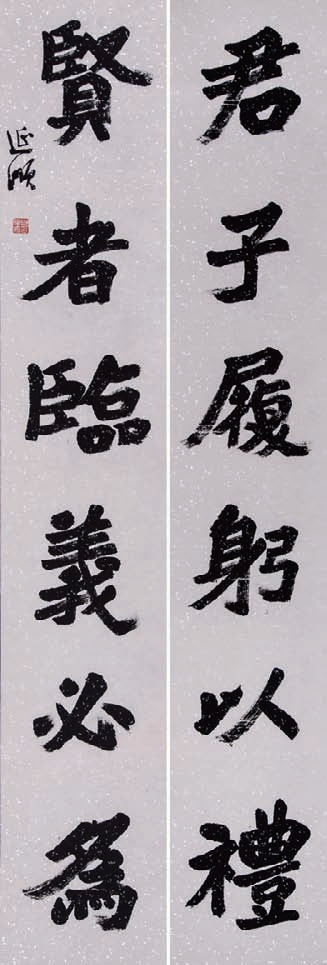 君子履躬以禮
賢者臨義必為